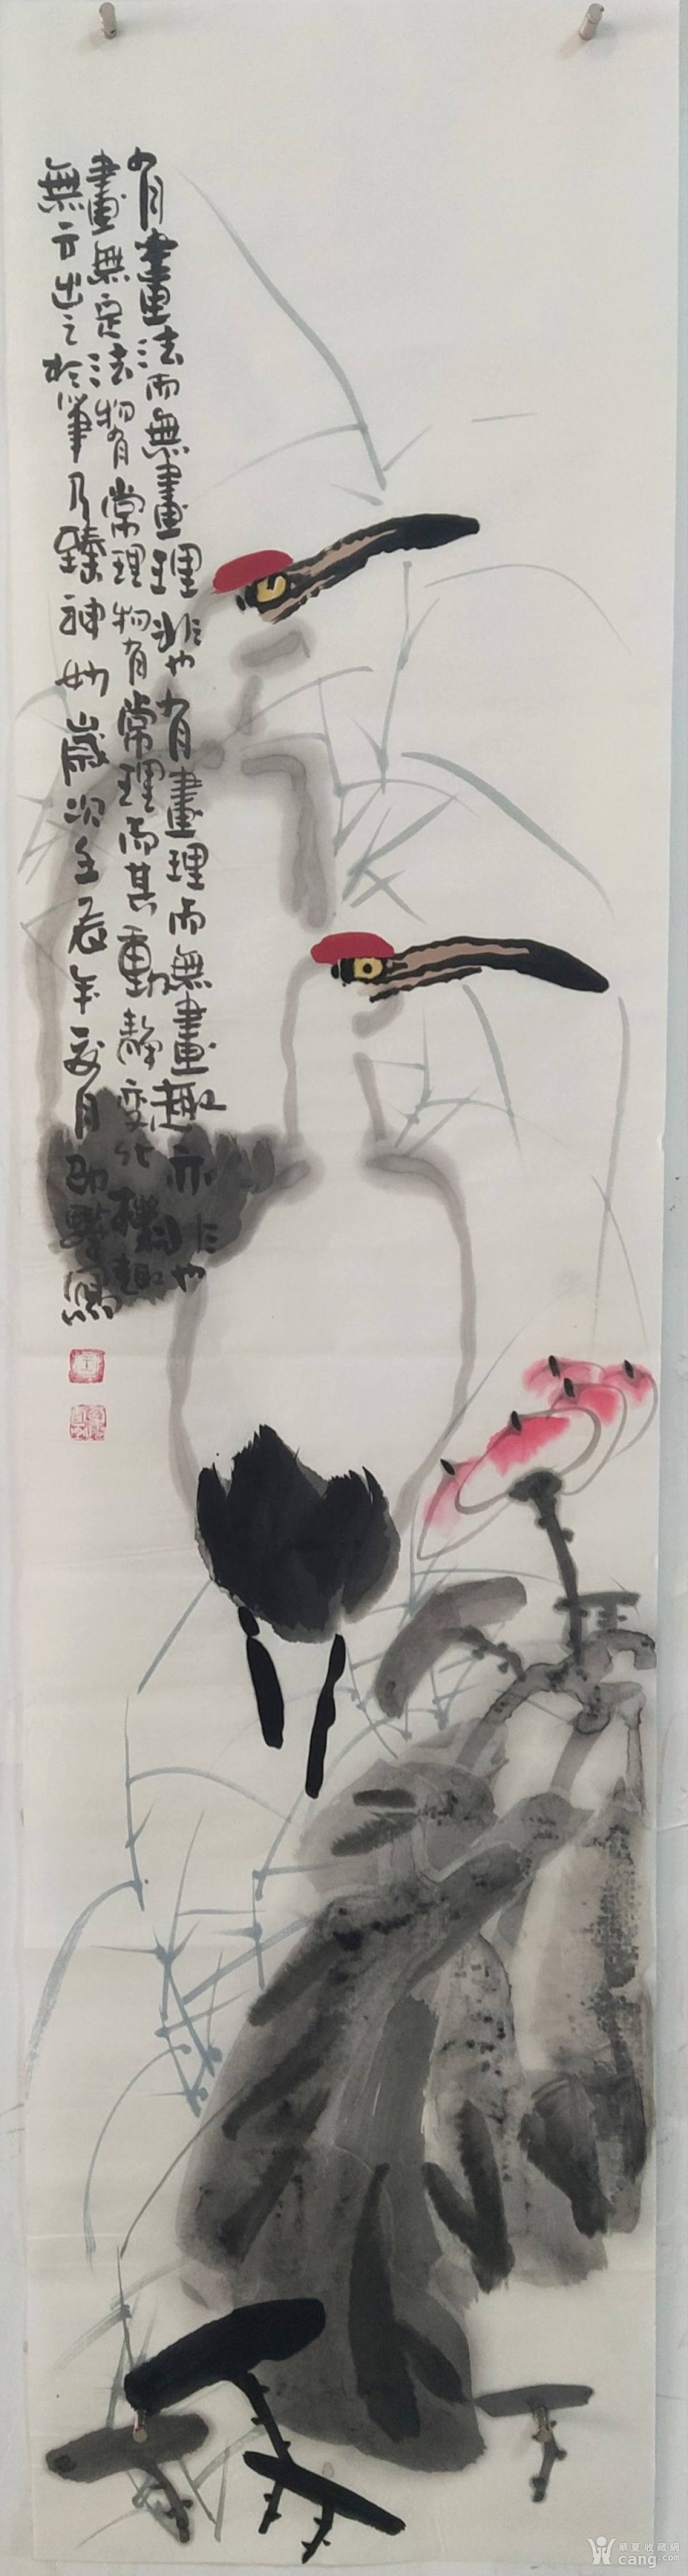 有畫法而無畫理非也有畫理而無畫趣亦非也
畫無定法物有常理物有常理而其動靜變化機趣
無方出之於筆乃臻神妙歲次壬辰年月寫
華夏收藏網
cang.com